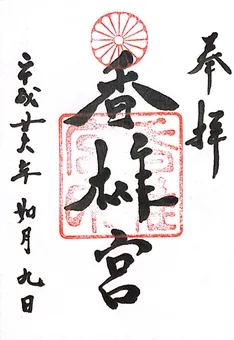 奉拝
香椎宮
平成廿六年如月九日